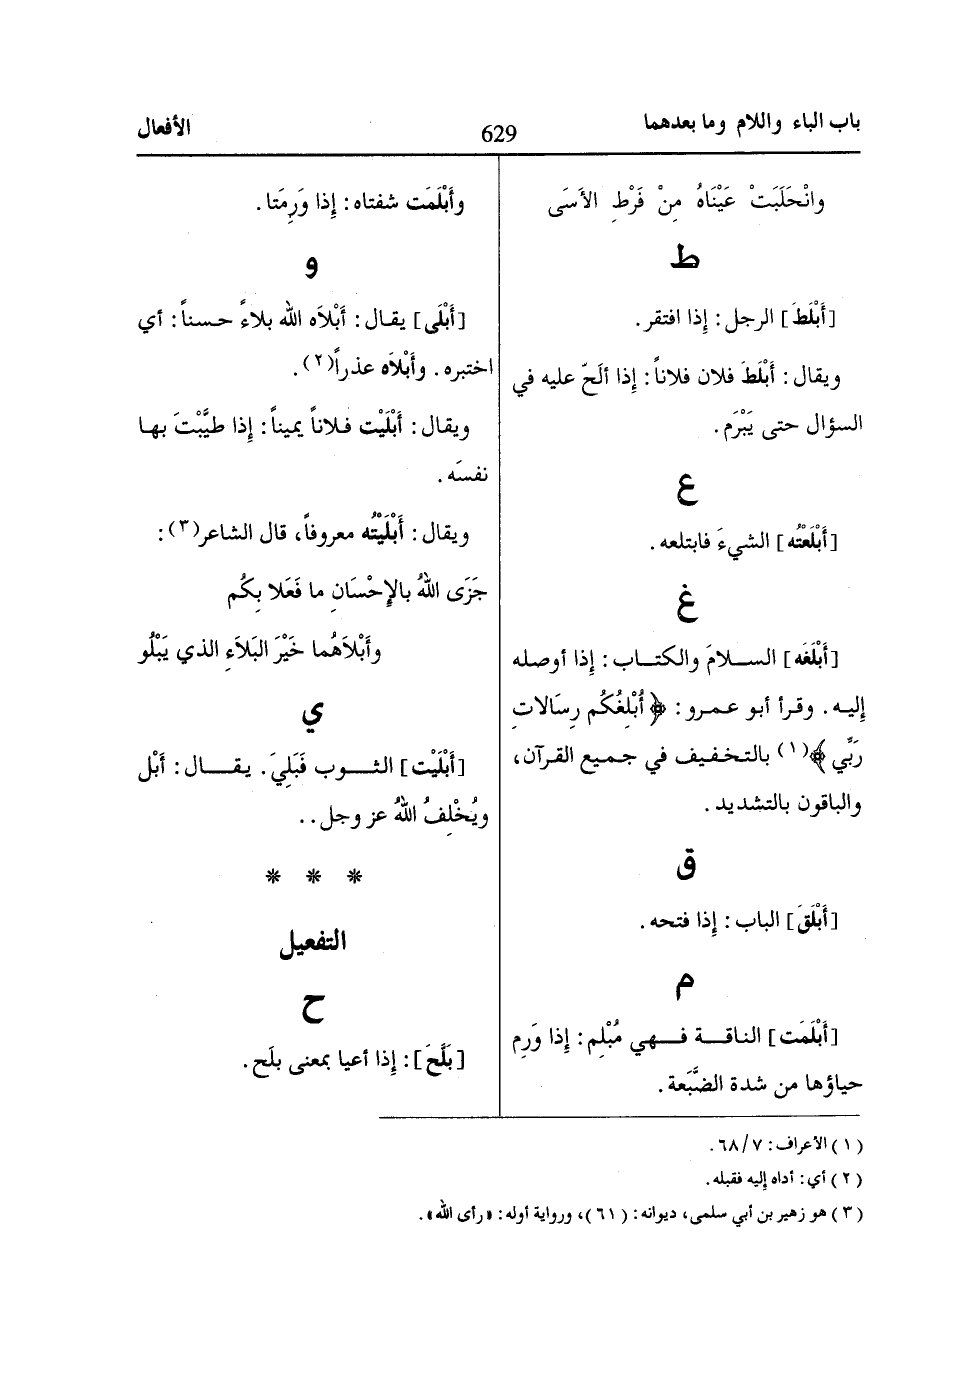 باب الباء واللام وما بعدهما
629
الأفعال
وانْحَلَبَتْ عَيْنَاهُ مِنْ فَرْطِ الأَسَى
ط
[أَبْلَطَ] الرجل: إِذا افتقر.
ويقال: أَبْلَطَ فلان فلاناً: إِذا ألَحّ عليه في
السؤال حتى يَبْرَم.
ع
[أَبْلَعْتُه] الشيءَ فابتلعه.
غ
[أَبْلَغَه] السلامَ والكتاب: إِذا أوصله
إِليه. وقرأ أبو عمرو: ﴿أُبْلِغُكُم رِسَالات
رَبِّي﴾(١) بالتخفيف في جميع القرآن،
والباقون بالتشديد.
ق
[أَبْلَقَ] الباب: إِذا فتحه.
م
[أَبْلَمَت] الناقة فهي مُبْلِم: إِذا وَرِم
حياؤها من شدة الضَّبَعة.
وأَبْلَمَت شفتاه: إِذا وَرِمَتا.
و
[أَبْلَى] يقال: أَبْلاَه الله بلاءً حسناً: أي
اختبره. وأَبْلاَه عذراً(٢).
ويقال: أَبْلَيْت فلاناً يميناً: إِذا طيَّبْتَ بها
نفسَه.
ويقال: أَبْلَيْتُه معروفاً، قال الشاعر(٣):
جَزَى اللهُ بالإِحْسَانِ ما فَعَلا بِكُم
وأَبْلاَهُما خَيْرَ البَلاَءِ الذي يَبْلُو
ي
[أَبْلَيْت] الثوب فَبَلِيَ. يقال: أَبْل
ويُخْلِفُ اللهُ عز وجل..
* * *
التفعيل
ح
[بَلَّحَ]: إِذا أعيا بمعنى بلَح.
(١) الأعراف: ٦٨/٧.
(٢) أي: أداه إِليه فقبله.
(٣) هو زهير بن أبي سلمى، ديوانه: (٦١)، ورواية أوله: «رأى الله».